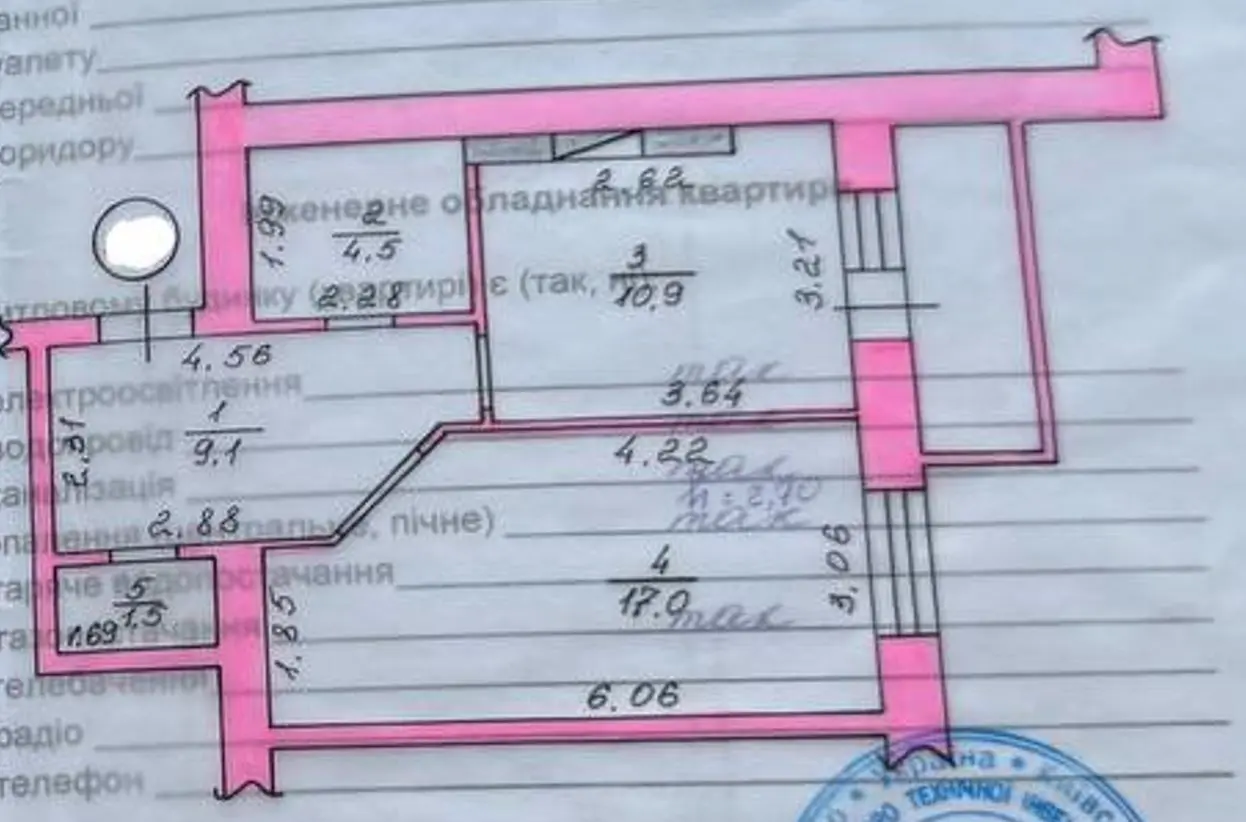 анної
уалету
ередньої
оридору
2.62
обладнання квартири
1.99
2
4.5
3
10.9
3.21
2.28
є (так,
4.56
електроосвітлення
так
3.64
1
9.1
2.31
4.22
так
h = 2,70
так
каналізація
2.88
пічне)
3.06
4
17.0
так
5
1.5
1.69
1.85
6.06
радіо
телефон
Україна • Київс
ТЕХНІЧНОЇ ІНВЕ